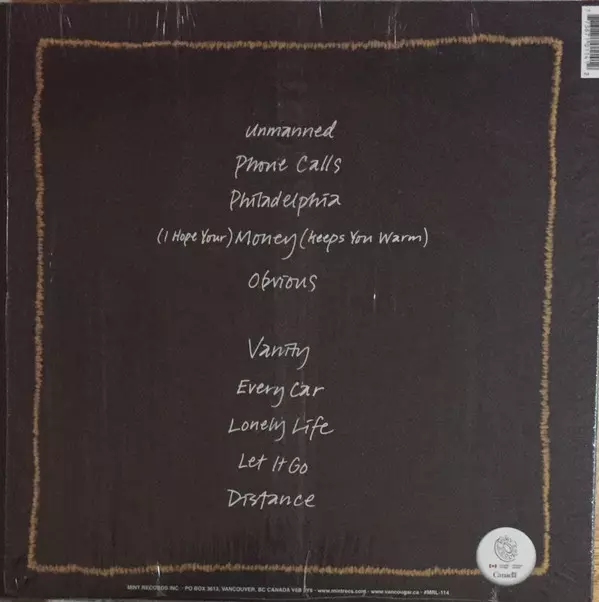 Unmanned
Phone Calls
Philadelphia
(I Hope Your) Money (Keeps You Warm)
Obvious
Vanity
Every Car
Lonely Life
Let It Go
Distance
Canada
MINT RECORDS INC. • PO BOX 3613, VANCOUVER, BC CANADA V6B 3Y6 • www.mintrecs.com • www.vancougar.ca • #MRL-114